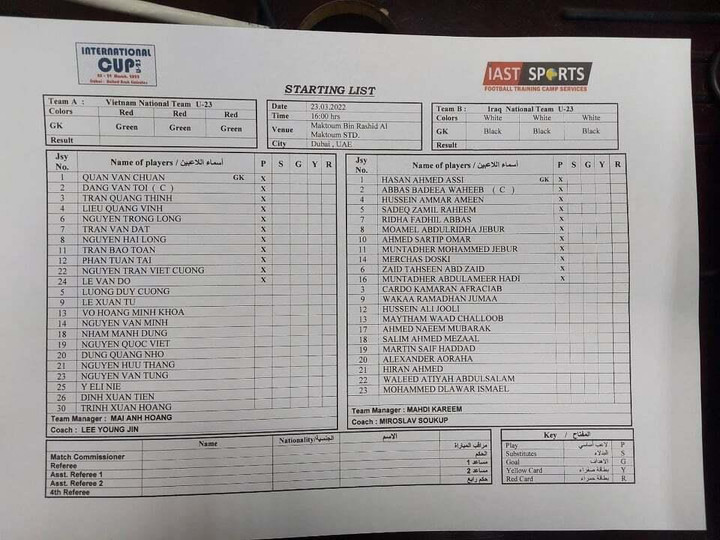 INTERNATIONAL
CUP U23
23 - 29 March, 2022
IAST SPORTS
FOOTBALL TRAINING CAMP SERVICES
STARTING LIST
Team A : Vietnam National Team U-23
Colors Red Red Red
GK Green Green Green
Result
Date 23.03.2022
Time 16:00 hrs
Venue Maktoum Bin Rashid Al Maktoum STD.
City Dubai , UAE
Team B : Iraq National Team U-23
Colors White White White
GK Black Black Black
Result
Jsy No. Name of players / أسماء اللاعبين P S G Y R
1 QUAN VAN CHUAN GK X
2 DANG VAN TOI ( C ) X
3 TRAN QUANG THINH X
4 LIEU QUANG VINH X
6 NGUYEN TRONG LONG X
7 TRAN VAN DAT X
8 NGUYEN HAI LONG X
11 TRAN BAO TOAN X
12 PHAN TUAN TAI X
22 NGUYEN TRAN VIET CUONG X
24 LE VAN DO X
5 LUONG DUY CUONG
9 LE XUAN TU
13 VO HOANG MINH KHOA
14 NGUYEN VAN MINH
18 NHAM MANH DUNG
19 NGUYEN QUOC VIET
20 DUNG QUANG NHO
21 NGUYEN HUU THANG
23 NGUYEN VAN TUNG
25 Y ELI NIE
26 DINH XUAN TIEN
30 TRINH XUAN HOANG
Team Manager : MAI ANH HOANG
Coach : LEE YOUNG JIN
Jsy No. Name of players / أسماء اللاعبين P S G Y R
1 HASAN AHMED ASSI GK X
2 ABBAS BADEEA WAHEEB ( C ) X
4 HUSSEIN AMMAR AMEEN X
5 SADEQ ZAMIL RAHEEM X
7 RIDHA FADHIL ABBAS X
8 MOAMEL ABDULRIDHA JEBUR X
10 AHMED SARTIP OMAR X
11 MUNTADHER MOHAMMED JEBUR X
14 MERCHAS DOSKI X
6 ZAID TAHSEEN ABD ZAID X
16 MUNTADHER ABDULAMEER HADI X
3 CARDO KAMARAN AFRACIAB
9 WAKAA RAMADHAN JUMAA
12 HUSSEIN ALI JOOLI
13 MAYTHAM WAAD CHALLOOB
17 AHMED NAEEM MUBARAK
18 SALIM AHMED MEZAAL
19 MARTIN SAIF HADDAD
20 ALEXANDER AORAHA
21 HIRAN AHMED
22 WALEED ATIYAH ABDULSALAM
23 MOHAMMED DLAWAR ISMAEL
Team Manager : MAHDI KAREEM
Coach : MIROSLAV SOUKUP
Name Nationality/الجنسية الاسم
Match Commissioner مراقب المباراة
Referee الحكم
Asst. Referee 1 مساعد 1
Asst. Referee 2 مساعد 2
4th Referee حكم رابع
Key / المفتاح
Play لاعب أساسي P
Substitutes البدلاء S
Goal الأهداف G
Yellow Card بطاقة صفراء Y
Red Card بطاقة حمراء R